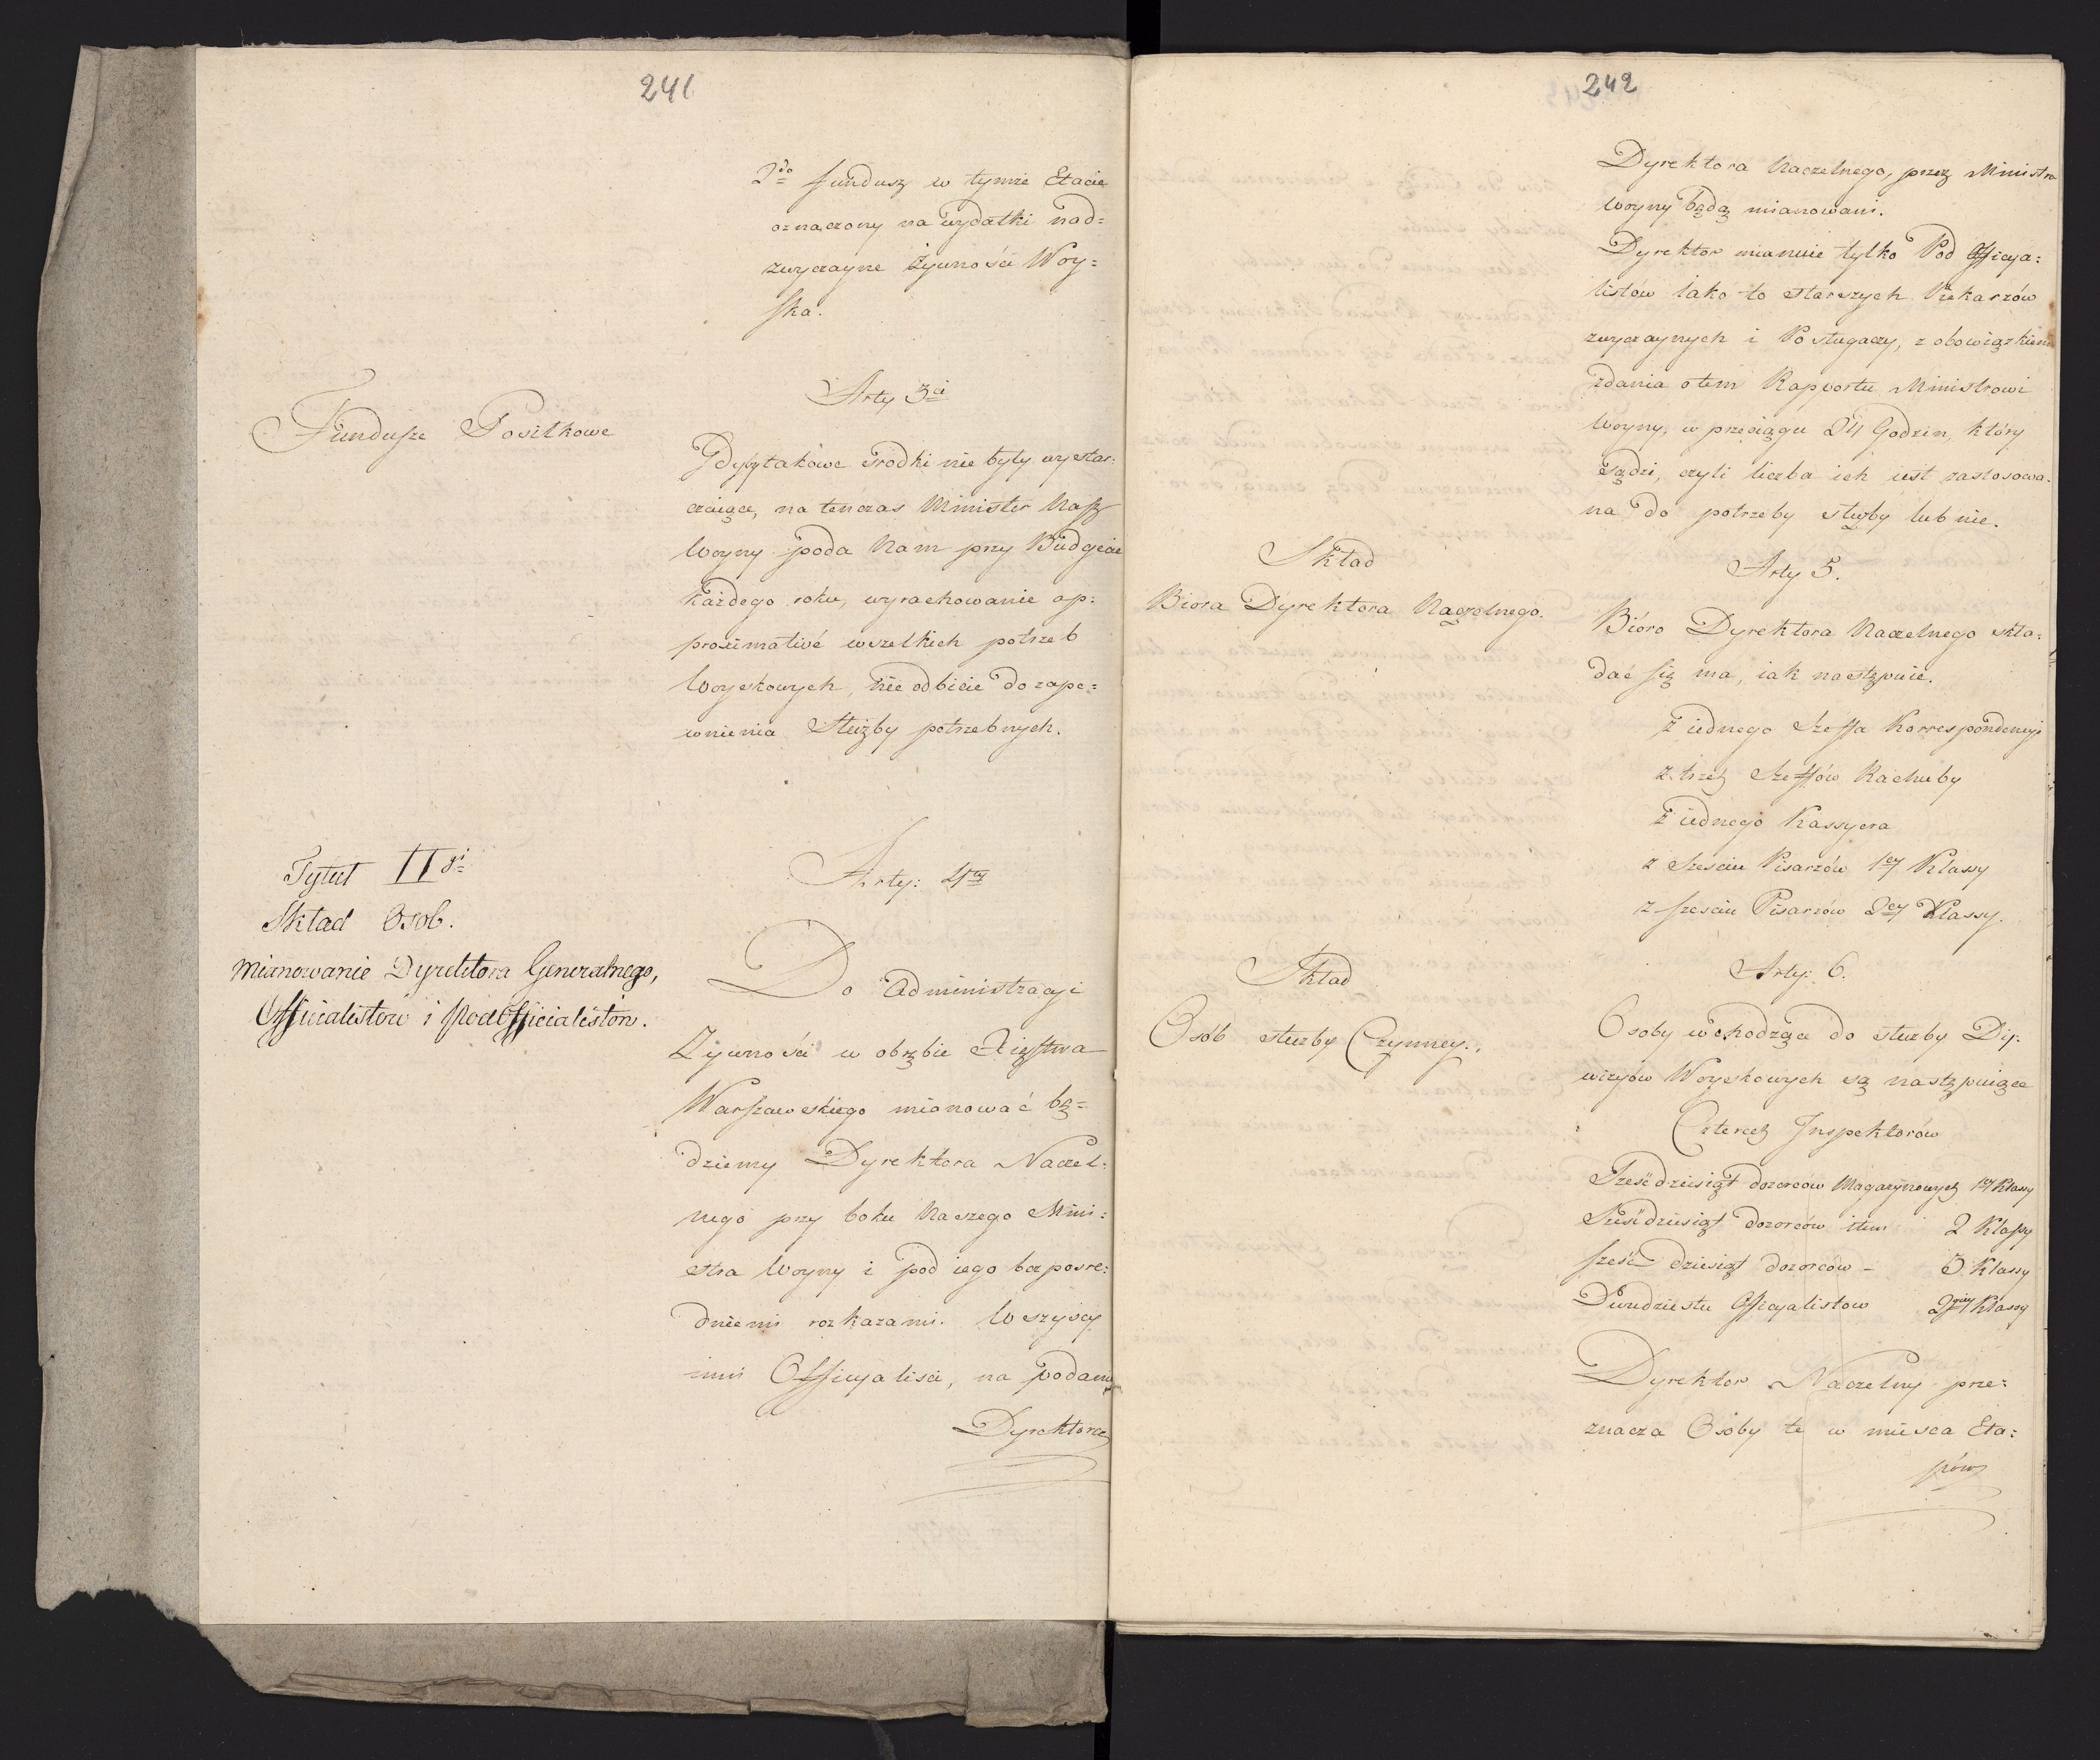 241
2do fundusz w tymże Etacie
oznaczony na wydatki nad=
zwyczayne żywności Woy=
ska.
Fundusze Posiłkowe
Arty 3ci
Gdyby takowe srodki nie były wystar:
czaiące, na tenczas Minister Nasz
Woyny poda Nam przy Budgecie
każdego roku, wyrachowanie ap:
proximativé wszelkich potrzeb
Woyskowych, nie odbicie do zape=
wnienia Służby potrzebnych.
Tytuł IIgi
Skład Osob.
Mianowanie Dyrektora Generalnego,
Officialistow i PodOfficialistów.
Arty: 4ty
Do Administracyi
Żywności w obrębie Xięstwa
Warszawskiego mianować bę=
dziemy Dyrektora Naczel:
nego przy boku Naszego Mini:
stra Woyny i pod iego bezposre:
dniemi rozkazami. Wszyscy
inni Officyalisci, na podanie
Dyrektora
242
Dyrektora Naczelnego, przez Ministra
Woyny będą mianowani.
Dyrektor mianuie tylko Pod Officya:
listów iako to starszych Piekarzów
zwyczaynych i Posługaczy, z obowiązkiem
zdania otem Rapportu Ministrowi
Woyny, w przeciągu 24 Godzin, który
sądzi, czyli liczba ich iest zastosowa:
na do potrzeby służby lub nie.
Skład
Biora Dyrektora Naczelnego.
Arty 5.
Bióro Dyrektora Naczelnego skła:
dać się ma, iak następuie.
z iednego Szeffa Korrespondencyi
z trzech Szeffów Rachuby
z iednego Kassyera
z Szesciu Pisarzów 1ey Klassy
z szesciu Pisarzów 2ey Klassy.
Skład
Osób służby Czynney.
Arty: 6.
Osoby wchodzące do służby Dy:
wizyów Woyskowych są następuiące
Czterech Inspektorów
Sześćdziesiąt dozorców Magazynowych 1ey Klassy
Sześćdziesiąt dozorców item 2 Klassy
sześć dziesiąt dozorców - 3 Klassy
Dwudziestu Officyalistow 2giey Klassy
Dyrektor Naczelny prze:
znacza Osoby te w mieysca Eta:
pów